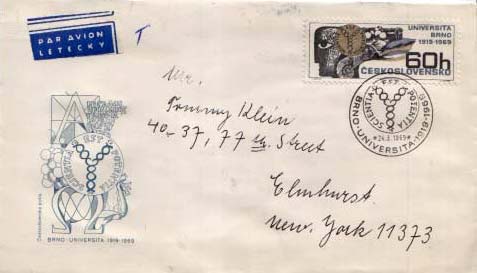 PAR AVION
LETECKY
T
UNIVERSITA
BRNO
1919-1969
60h
ČESKOSLOVENSKO
SCIENTIA EST POTENTIA
BRNO-UNIVERSITA-1919-1969
*24.3.1969*
Mr.
Tommy Klein
40-37, 77 Street
Elmhurst
New York 11373
SCIENTIA EST POTENTIA
Československá pošta
BRNO - UNIVERSITA 1919-1969